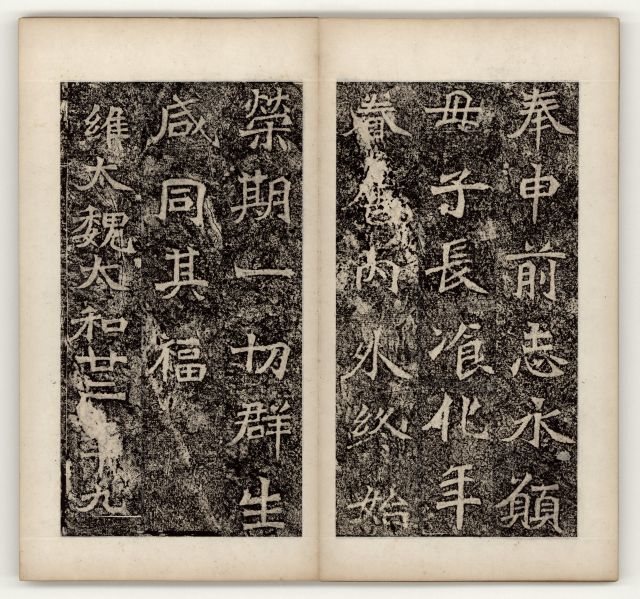 奉申前志永願
母子長飡化年
眷內外終始
榮期一切群生
咸同其福
維大魏太和廿二年九